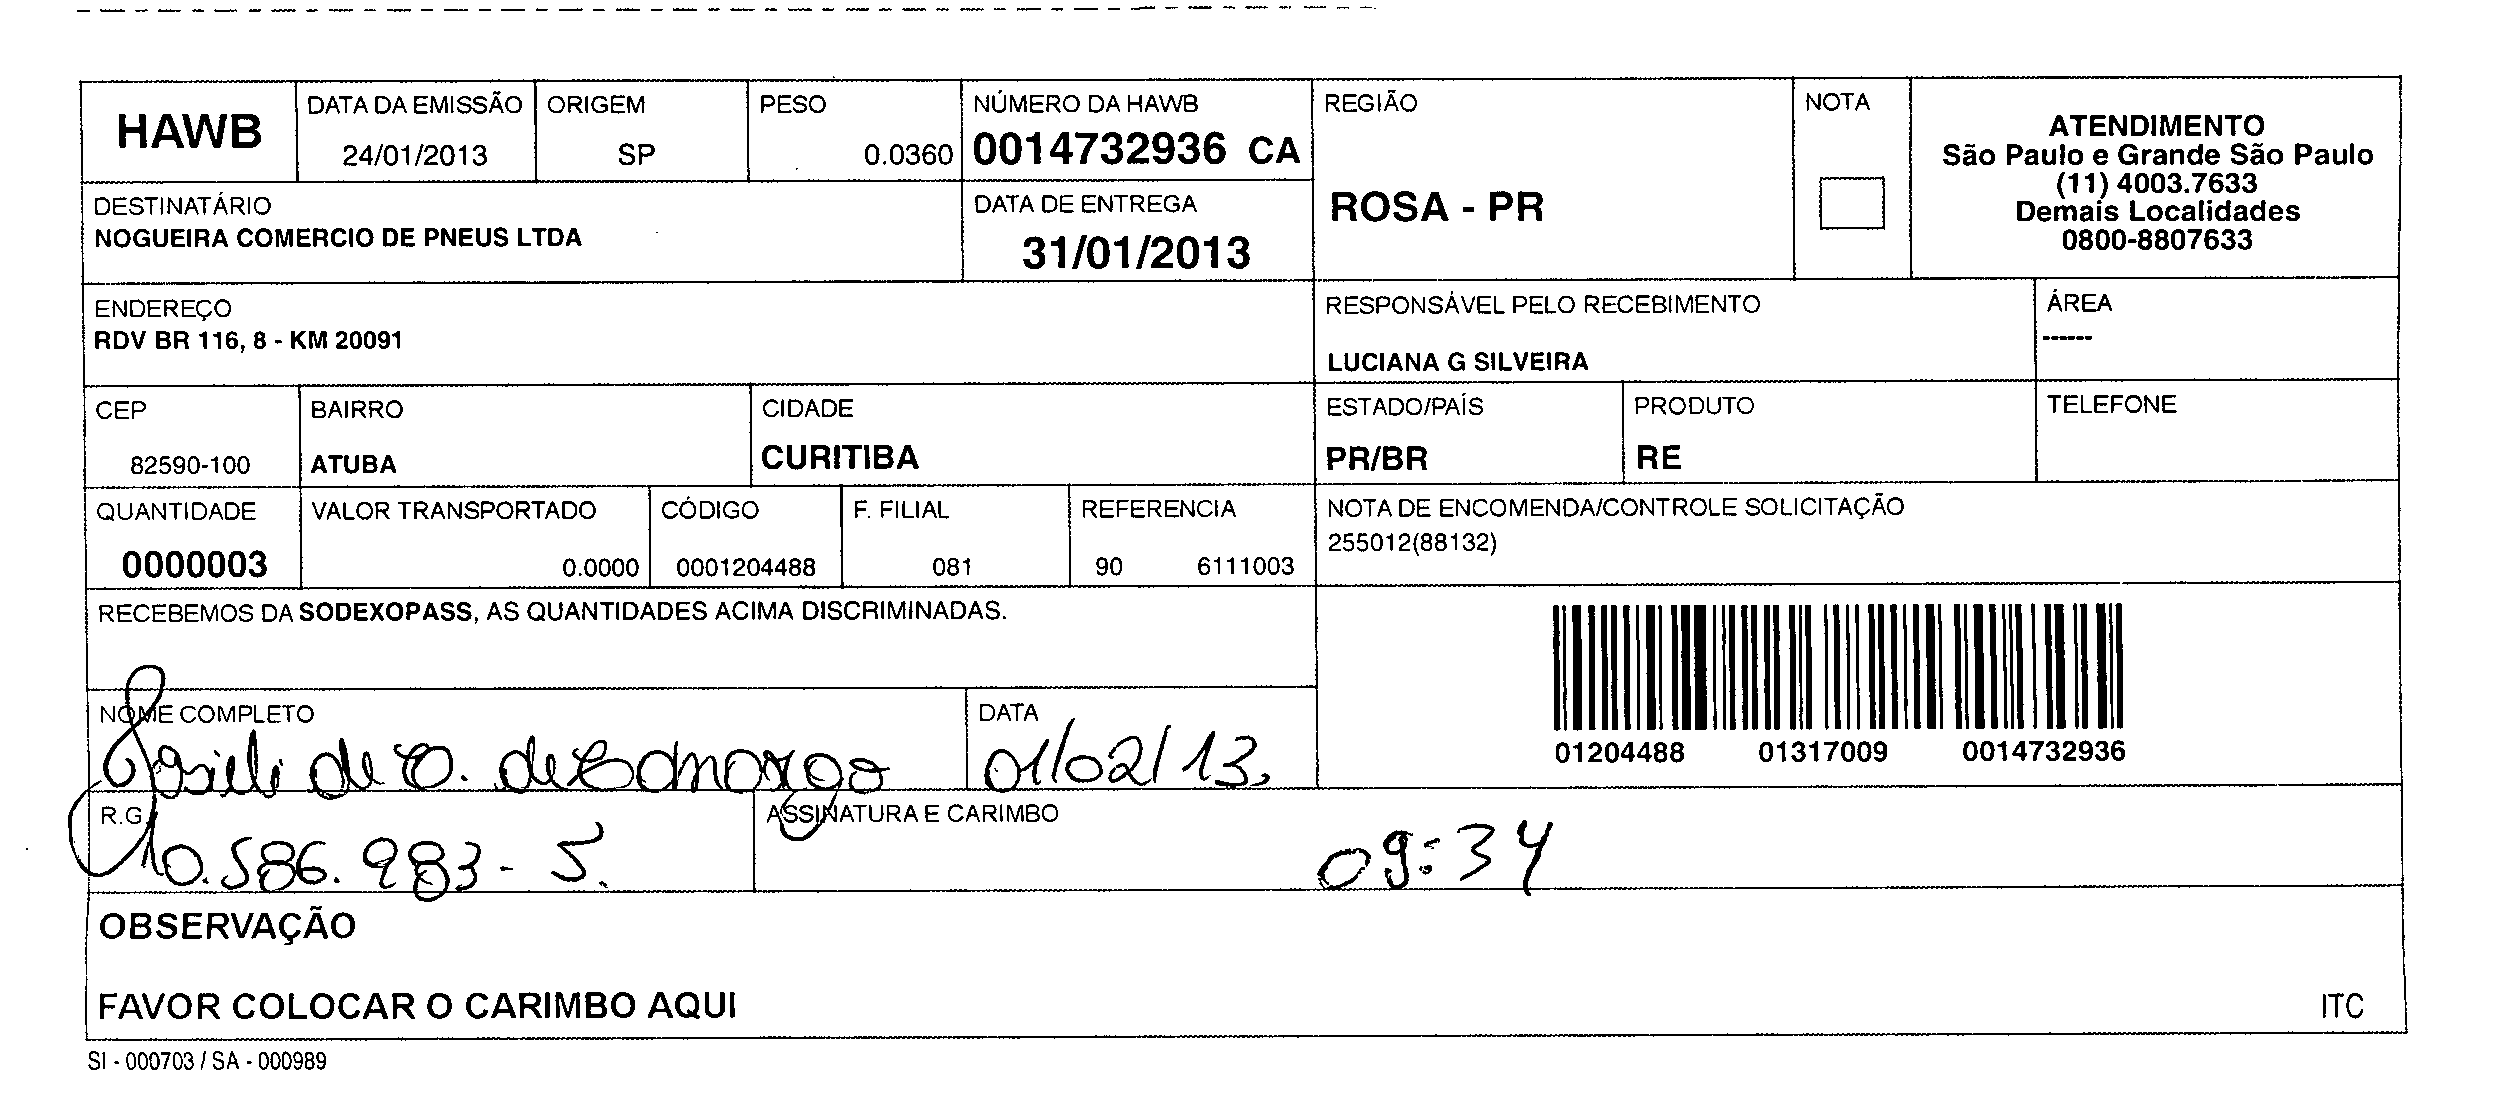 HAWB
DATA DA EMISSÃO
24/01/2013
ORIGEM
SP
PESO
0.0360
NÚMERO DA HAWB
0014732936 CA
REGIÃO
ROSA - PR
NOTA
ATENDIMENTO
São Paulo e Grande São Paulo
(11) 4003.7633
Demais Localidades
0800-8807633
DESTINATÁRIO
NOGUEIRA COMERCIO DE PNEUS LTDA
DATA DE ENTREGA
31/01/2013
ENDEREÇO
RDV BR 116, 8 - KM 20091
RESPONSÁVEL PELO RECEBIMENTO
LUCIANA G SILVEIRA
ÁREA
------
CEP
82590-100
BAIRRO
ATUBA
CIDADE
CURITIBA
ESTADO/PAÍS
PR/BR
PRODUTO
RE
TELEFONE
QUANTIDADE
0000003
VALOR TRANSPORTADO
0.0000
CÓDIGO
0001204488
F. FILIAL
081
REFERENCIA
90 6111003
NOTA DE ENCOMENDA/CONTROLE SOLICITAÇÃO
255012(88132)
RECEBEMOS DA SODEXOPASS, AS QUANTIDADES ACIMA DISCRIMINADAS.
01204488 01317009 0014732936
NOME COMPLETO
de de
DATA
01/02/13
R.G.
10.586.983-5.
ASSINATURA E CARIMBO
09:34
OBSERVAÇÃO
FAVOR COLOCAR O CARIMBO AQUI
ITC
SI - 000703 / SA - 000989